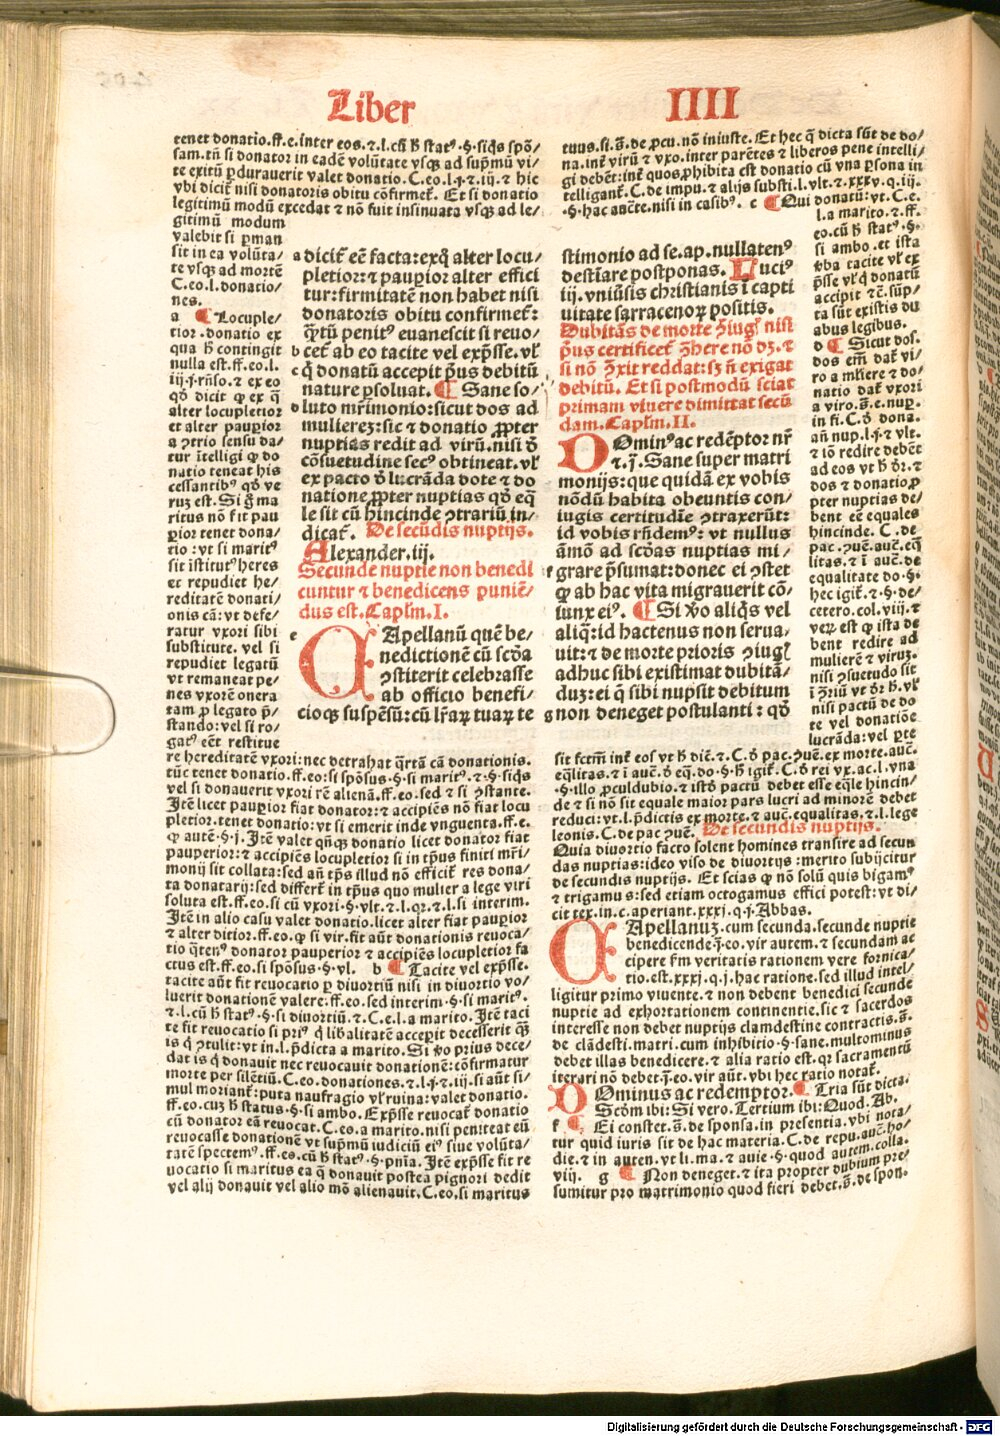 Liber IIII
tenet donatio.ff.e.inter eos.⁊.l.cū ħ statꝰ.§.siq̄s spō/
sam.tñ si donator in eadē volūtate vsqꝫ ad sup̄mū vi/
te exitū ꝑdurauerit valet donatio. C.eo.l.j.⁊.iij.⁊ hic
vbi dicit̄ nisi donatoris obitu cōfirmet̄. Et si donatio
legitimū modū excedat ⁊ nō fuit insinuata vsqꝫ ad le/
gitimū modum
valebit si ꝑman
sit in ea volūta/
te vsqꝫ ad mortē
C.eo.l.donatio/
nes.
a ¶ Locuple/
tior.donatio ex
qua ħ contingit
nulla est.ff.eo.l.
iij.j.rn̄so.⁊ ex eo
qđ dicit ꝙ ex q̄
alter locupletior
et alter pauꝑior
a ꝯtrio sensu da/
tur ītelligi ꝙ do
natio teneat his
cessantibꝰ qđ ve
ruꝫ est. Si ḡ ma
ritus nō fit pau
ꝑior tenet dona/
tio:vt si maritꝰ
sit īstitutꝰ heres
et repudiet he/
reditatē donati/
onis cā:vt defe/
ratur vxori sibi
substitute. vel si
repudiet legatū
vt remaneat pe/
nes vxorē onera
tam ꝓ legato p̄/
stando:vel si ro/
gatꝰ eēt restitue
re hereditatē vxori:nec detrahat q̄rtā cā donationis.
tūc tenet donatio.ff.eo:si spōsus.§.si maritꝰ.⁊.§.siq̄s
vel si donauerit vxori rē alienā.ff.eo.sed ⁊ si ꝯstante.
Itē licet pauꝑior fiat donator:⁊ accipiēs nō fiat locu
pletior.tenet donatio:vt si emerit inde vnguenta.ff.e.
ꝙ autē.§.j. Itē valet qn̄qꝫ donatio licet donator fiat
pauperior:⁊ accipiēs locupletior si in tp̄us finiti mr̄i/
monij sit collata:sed añ tp̄s illud nō efficit̄ res dona/
ta donatarij:sed differt̄ in tp̄us quo mulier a lege viri
soluta est.ff.eo.si cū vxori.§.vlt.⁊.l.qꝛ.⁊.l.si interim.
Itē in alio casu valet donatio.licet alter fiat pauꝑior
⁊ alter ditior.ff.eo.ꝙ si vir.fit aūt donationis reuoca/
tio q̄tenꝰ donator pauperior ⁊ accipiēs locupletior fa
ctus est.ff.eo.si spōsus.§.vl. b ¶ Tacite vel exp̄sse.
tacite aūt fit reuocatio ꝑ diuortiū nisi in diuortio vo/
luerit donationē valere.ff.eo.sed interim.§.si maritꝰ.
⁊.l.cū ħ statꝰ.§.si diuortiū.⁊.C.e.l.a marito. Itē taci
te fit reuocatio si priꝰ q̄ libālitatē accepit decesserit qꝫ
is q̄ ꝯtulit:vt in.l.p̄dicta a marito. Si v̄o prius dece/
dat is q̄ donauit nec reuocauit donationē:cōfirmatur
morte per silētiū. C.eo.donationes.⁊.l.j.⁊.iij.si aūt si/
mul moriant̄:puta naufragio vl̄ ruina:valet donatio.
ff.eo.cuꝫ ħ status.§.si ambo. Exp̄sse reuocat̄ donatio
cū donator eā reuocat. C.eo.a marito.nisi peniteat eū
reuocasse donationē vt sup̄mū iudiciū eiꝰ siue volūta/
tatē spectemꝰ.ff.eo.cū ħ statꝰ.§.pn̄ia. Itē exp̄sse fit re
uocatio si maritus ea q̄ donauit postea pignori dedit
vel alij donauit vel alio mō alienauit. C.eo.si maritus
a dicit̄ eē facta:exq̄ alter locu/
pletior:⁊ pauꝑior alter effici
tur:firmitatē non habet nisi
donatoris obitu confirmet̄:
q̄tū penitꝰ euanescit si reuo/
b cet̄ ab eo tacite vel exp̄sse.vl̄
c q̄ donatū accepit p̄us debitū
nature ꝑsoluat. ¶ Sane so/
d luto mr̄imonio:sicut dos ad
mulierēꝫ:sic ⁊ donatio ꝓpter
nuptias redit ad virū.nisi đ
cōsuetudine secꝰ obtineat.vl̄
ex pacto đ lucrāda dote ⁊ do
natione ꝓpter nuptias qđ eq̄
le sit cū hincinde ꝯtrariū in/
dicat̄. De secūdis nuptijs.
Alexander.iij.
Secunde nuptie non benedi
cuntur ⁊ benedicens puniē/
dus est. Caplm̄.I.
e CApellanū quē be/
nedictionē cū scđa
ꝯstiterit celebrasse
ab officio benefi/
cioqꝫ suspēsū:cū lr̄aꝝ tuaꝝ te
stimonio ad se.ap.nullatenꝰ
destīare postponas. Luciꝰ
iij.vniūsis christianis ī capti
uitate sarracenoꝝ positis.
Dubitās de morte ꝯiugꝭ nisi
p̄us certificet̄ ꝯhere nō dꝫ.⁊
si nō ꝯxit reddat:sꝫ ñ exigat
debitū. Et si postmodū sciat
primam viuere dimittat secū
dam. Caplm̄.II.
DOminꝰ ac redēptor nr̄
⁊.j̄. Sane super matri
monijs:que quidā ex vobis
nōdū habita obeuntis con/
iugis certitudīe ꝯtraxerūt:
id vobis rn̄demꝰ:vt nullus
āmō ad scđas nuptias mi/
f grare p̄sumat:donec ei ꝯstet
ꝙ ab hac vita migrauerit cō/
iunx eiꝰ. ¶ Si v̄o aliq̄s vel
aliq̄:id hactenus non serua/
uit:⁊ de morte prioris ꝯiugꝭ
adhuc sibi existimat dubitā/
duꝫ:ei q̄ sibi nupsit debitum
g non deneget postulanti:qđ
tuus.si.s̄.de ꝓcu.nō iniuste. Et hec q̄ dicta sūt de do/
na.int̄ virū ⁊ vxo.inter parētes ⁊ liberos pene intelli/
gi debēt:int̄ quos ꝓhibita est donatio cū vna ꝑsona in
telligant̄. C.de impu.⁊ alijs substi.l.vlt.⁊.xxxv.q.iij.
.§.hac auctē.nisi in casibꝰ. c ¶ Qui donatū:vt. C.e.
l.a marito.⁊.ff.
eo.cū ħ statꝰ.§.
si ambo.et ista
v̄ba tacite vl̄ ex
p̄sse vl̄ q̄ donatū
accipit ⁊c̄.sup̄/
ta sūt existis du
abus legibus.
d ¶ Sicut dos.
dos em̄ dat̄ vi/
ro a mliere ⁊ do/
natio dat̄ vxori
a viro.s̄.e.nup̄.
in fi. C.đ dona.
añ nup.l.j.⁊ vlt.
⁊ iō redire debēt
ad eos vt ħ dr̄.⁊
dos ⁊ donatio ꝓ
pter nuptias de/
bent eē equales
hincinde. C.de
pac.ꝯuē.auc̄.eq̄
litas.⁊ ī auc̄.de
equalitate do.§.
hec igit̄.⁊.§.de/
cetero.col.viij.⁊
veꝝ est ꝙ ista de
bent redire ad
mulierē ⁊ viruꝫ.
nisi ꝯsuetudo sit
ī ꝯriū vt dr̄ ħ.vl̄
nisi pactū de do
te vel donatiōe
lucrāda:vel ꝑte
sit fctm̄ int̄ eos vt ħ dic̄.⁊. C.đ pac.ꝯuē.ex morte.auc̄.
eq̄litas.⁊ ī auc̄.đ eq̄.do.§.ħ igit̄. C.đ rei vx.ac.l.vna
.§.illo ꝓculdubio.⁊ istđ pactū debet esse eq̄le hincin/
de ⁊ si nō sit equale maior pars lucri ad minorē debet
reduci:vt.l.p̄dictis ex morte.⁊ auc̄.equalitas.⁊.l.lege
leonis. C.de pac ꝯuē. De secundis nuptijs.
Quia diuortio facto solent homines transire ad secun
das nuptias:ideo viso de diuortijs:merito subijcitur
de secundis nuptijs. Et scias ꝙ nō solū quis bigamꝰ
⁊ trigamus:sed etiam octogamus effici potest:vt di/
cit tex.in.c.aperiant.xxxj.q.j. Abbas.
CApellanuꝫ.cum secunda.secunde nuptie
benedicende.j̄.eo.vir autem.⁊ secundam ac
cipere fm̄ veritatis rationem vere fornica/
tio.est.xxxj.q.j.hac ratione.sed illud intel/
ligitur primo viuente.⁊ non debent benedici secunde
nuptie ad exhortationem continentie.sic ⁊ sacerdos
interesse non debet nuptijs clamdestine contractis.s̄.
de clādesti.matri.cum inhibitio.§.sane.multominus
debet illas benedicere.⁊ alia ratio est.qꝛ sacramentū
iterari nō debet.j̄.eo.vir aūt.vbi hec ratio notat̄.
DOminus ac redemptor. ¶ Tria sūt dicta.
Scđm ibi:Si vero. Tertium ibi:Quod. Ab.
f ¶ Ei constet.s̄.de sponsa.in presentia.vbi nota/
tur quid iuris sit de hac materia. C.de repu.auc̄.ho/
die.⁊ in auten.vt li.ma.⁊ auie.§.quod autem.colla.
viij. g ¶ Non deneget.⁊ ita propter dubium pre/
sumitur pro matrimonio quod fieri debet.s̄.de spon.
Digitalisierung gefördert durch die Deutsche Forschungsgemeinschaft - DFG